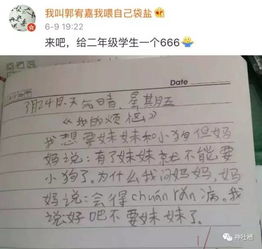 我叫郭宥嘉我喂自己袋盐
6-9 19:22
来吧，给二年级学生一个666
Date
3月24日 天 晴 星期五
《我的烦恼》
我想要妹妹和小狗但妈
妈说：有了妹妹就不能要
小狗了。为什么我问妈妈，妈
妈说：会得chuán rǎn病。我
说好吧不要妹妹了。
神吐槽